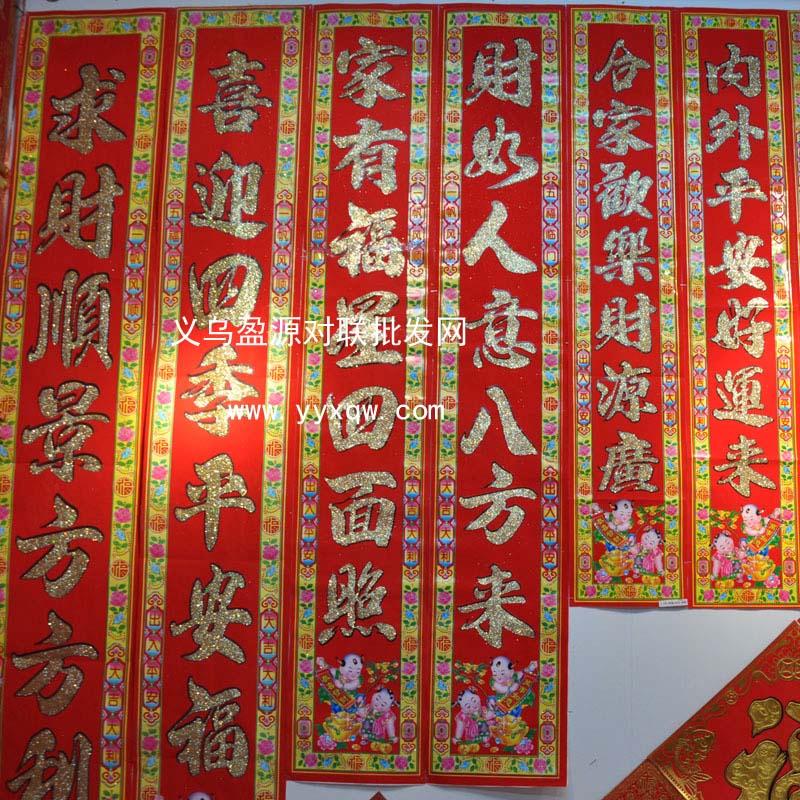 求財順景方方利
喜迎四季平安福
家有福星四面照
財如人意八方来
合家歡樂財源廣
内外平安好運来
义乌盈源对联批发网
www.yyxqw.com